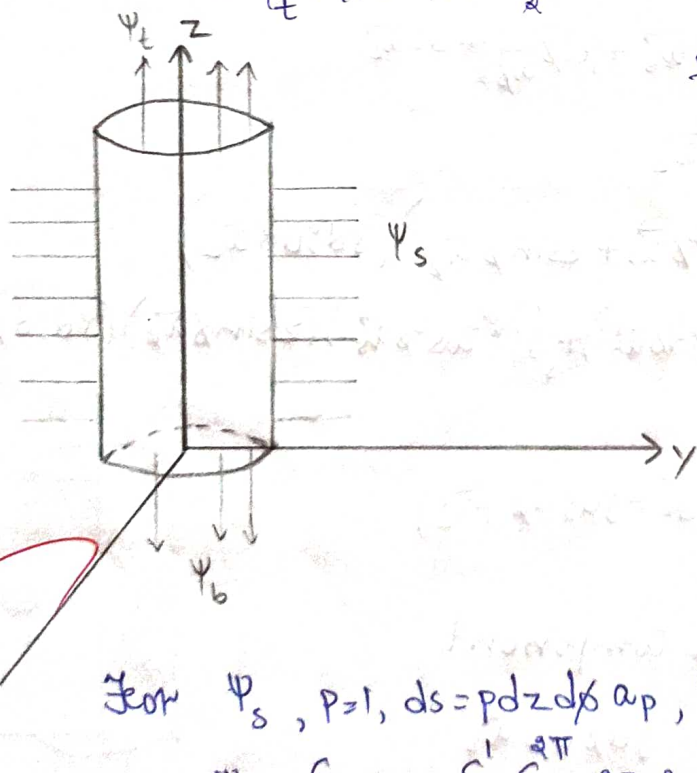 Ψt z
Ψs
y
Ψb
For Ψs, ρ=1, ds=ρdzdϕ aρ,
1 2π